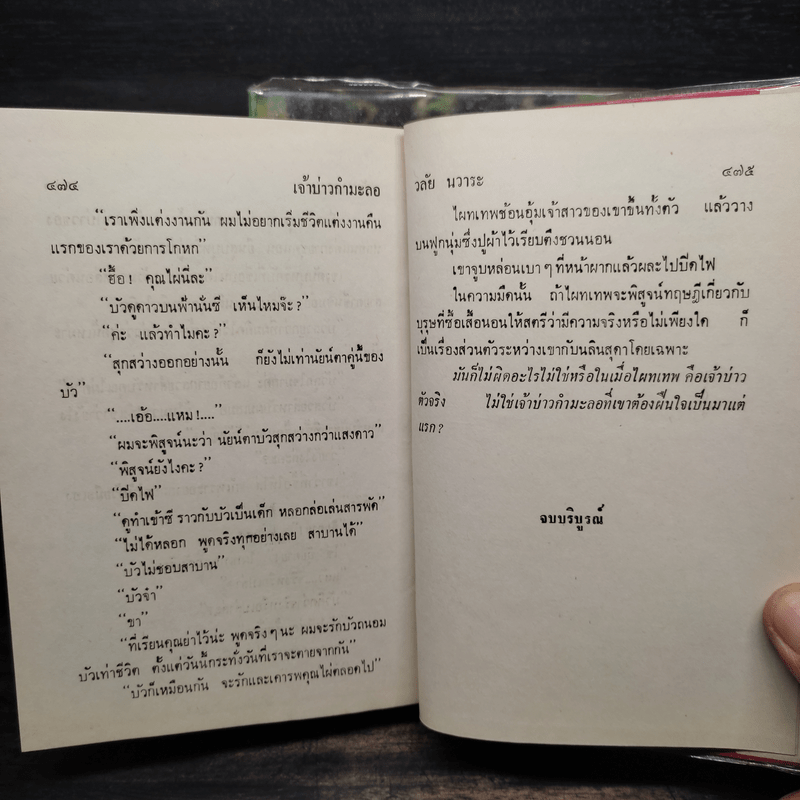 ๔๗๔ เจ้าบ่าวกำมะลอ
“เราเพิ่งแต่งงานกัน ผมไม่อยากเริ่มชีวิตแต่งงานคืน
แรกของเราด้วยการโกหก”
“ฮื้อ! คุณไผ่นี่ละ”
“บัวดูดาวบนฟ้านั่นซี เห็นไหมจ๊ะ?”
“ค่ะ แล้วทำไมคะ?”
“สุกสว่างออกอย่างนั้น ก็ยังไม่เท่านัยน์ตาคู่นี้ของ
บัว”
“....เอ้อ....แหม!....”
“ผมจะพิสูจน์นะว่า นัยน์ตาบัวสุกสว่างกว่าแสงดาว”
“พิสูจน์ยังไงคะ?”
“ปิดไฟ”
“ดูทำเข้าซี ราวกับบัวเป็นเด็ก หลอกล่อเล่นสารพัด”
“ไม่ได้หลอก พูดจริงทุกอย่างเลย สาบานได้”
“บัวไม่ชอบสาบาน”
“บัวจ๋า”
“ขา”
“ที่เรียนคุณย่าไว้น่ะ พูดจริงๆนะ ผมจะรักบัวถนอม
บัวเท่าชีวิต ตั้งแต่วันนี้กระทั่งวันที่เราจะตายจากกัน”
“บัวก็เหมือนกัน จะรักและเคารพคุณไผ่ตลอดไป”
วลัย นวาระ ๔๗๕
ไผทเทพช้อนอุ้มเจ้าสาวของเขาขึ้นทั้งตัว แล้ววาง
บนฟูกนุ่มซึ่งปูผ้าไว้เรียบตึงชวนนอน
เขาจูบหล่อนเบาๆที่หน้าผากแล้วผละไปปิดไฟ
ในความมืดนั้น ถ้าไผทเทพจะพิสูจน์ทฤษฎีเกี่ยวกับ
บุรุษที่ซื้อเสื้อนอนให้สตรีว่ามีความจริงหรือไม่เพียงใด ก็
เป็นเรื่องส่วนตัวระหว่างเขากับนลินสุดาโดยเฉพาะ
มันก็ไม่ผิดอะไรไม่ใช่หรือในเมื่อไผทเทพ คือเจ้าบ่าว
ตัวจริง ไม่ใช่เจ้าบ่าวกำมะลอที่เขาต้องฝืนใจเป็นมาแต่
แรก?
จบบริบูรณ์